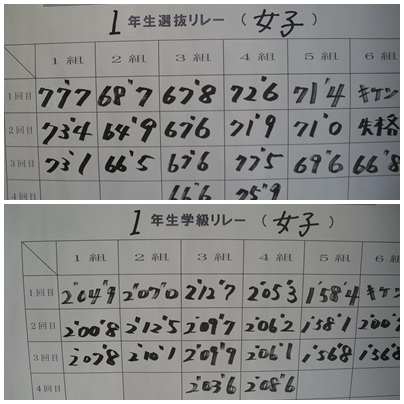 1年生選抜リレー（女子）
1組 2組 3組 4組 5組 6組
1回目 77"7 68"7 67"8 72"6 71"4 キケン
2回目 73"4 64"9 67"6 71"9 71"0 失格
3回目 73"1 66"5 67"6 77"5 69"6 66"8
66"6 75"9
1年生学級リレー（女子）
1組 2組 3組 4組 5組 6
1回目 2'04"9 2'07"0 2'12"7 2'05"3 1'58"4 キケン
2回目 2'00"8 2'12"5 2'09"7 2'06"2 1'58"1 2'00"
3回目 2'07"8 2'10"1 2'09"9 2'06"1 1'56"8 1'56"8
4回目 2'03"6 2'08"6